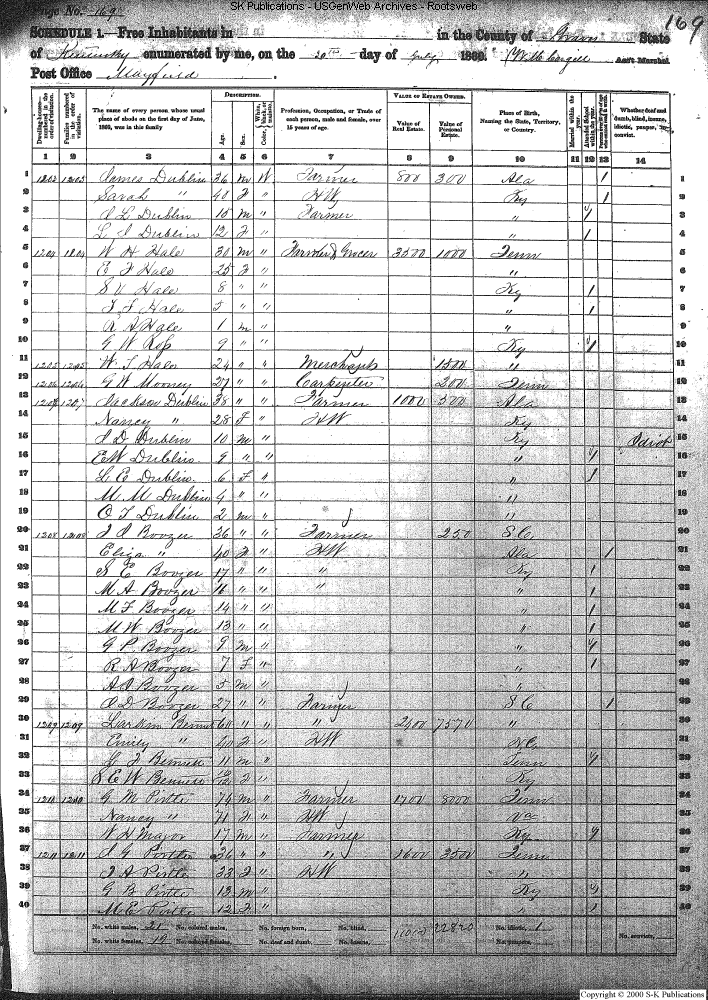 SK Publications - USGenWeb Archives - Rootsweb
Page No. 169
169
SCHEDULE 1.—Free Inhabitants in in the County of Graves State
of Kentucky enumerated by me, on the 20th day of July 1860. Ass't Marshal.
Post Office Mayfield
Dwelling-houses—numbered in the order of visitation.
Families numbered in the order of visitation.
The name of every person whose usual place of abode on the first day of June, 1860, was in this family
DESCRIPTION.
Age.
Sex.
Color, White, black, or mulatto.
Profession, Occupation, or Trade of each person, male and female, over 15 years of age.
VALUE OF ESTATE OWNED.
Value of Real Estate.
Value of Personal Estate.
Place of Birth, Naming the State, Territory, or Country.
Married within the year.
Attended School within the year.
Whether deaf and dumb, blind, insane, idiotic, pauper, or convict.
1 2 3 4 5 6 7 8 9 10 11 12 13 14
1 1203 1203 James Dublin 36 M W Farmer 800 300 Ala 1 1
2 Sarah " 40 F " HW Ky 1 2
3 Dublin 15 M " Farmer " 1 3
4 Dublin 12 F " " 1 4
5 1204 1204 W H Hale 30 M " Farmer & Grocer 3500 1000 Tenn 5
6 E F Hale 25 F " " 6
7 Hale 8 " " Ky 1 7
8 Hale 5 " " " 1 8
9 R A Hale 1 M " " 9
10 G W 9 " " Ky 1 10
11 1205 1205 Hale 24 " " Merchant 1500 " 11
12 1206 1206 G W Mooney 27 " " Carpenter 200 Tenn 12
13 1207 1207 Jackson Dublin 38 " " Farmer 1000 500 Ala 13
14 Nancy " 28 F " HW Ky 14
15 Dublin 10 M " Ky Idiot 15
16 E W Dublin 9 " " " 1 16
17 L E Dublin 6 F " " 1 17
18 M M Dublin 4 " " " 18
19 Dublin 2 M " " 19
20 1208 1208 Boozer 36 " " Farmer 250 S.C. 20
21 Eliza " 40 F " HW Ala 1 21
22 S E Boozer 17 " " " Ky 1 22
23 M A Boozer 16 " " " " 1 23
24 M F Boozer 14 " " " 1 24
25 M W Boozer 13 " " " 1 25
26 G P Boozer 9 M " " 1 26
27 R A Boozer 7 F " " 1 27
28 Boozer 5 M " " 28
29 Boozer 27 " " Farmer S C 1 29
30 1209 1209 Larkin Bennett 60 " " " 2400 7570 " 30
31 Emily " 40 F " HW N.C. 31
32 Bennett 11 M " Tenn 1 32
33 S E W Bennett F " Ky 33
34 1210 1210 G M Pirtle 74 M " Farmer 1700 8000 Tenn 34
35 Nancy " 71 F " HW Va 35
36 W H Major 17 M " Farmer Ky 36
37 1211 1211 Pirtle 36 " " " 1600 3500 Tenn 37
38 Pirtle 33 F " HW " 38
39 G B Pirtle 13 M " Ky 1 39
40 M E Pirtle 12 F " " 1 40
No. white males, 21 No. colored males, No. foreign born, No. blind, 11000 22820 No. idiotic, 1
No. white females, 19 No. colored females, No. deaf and dumb, No. insane, No. paupers, No. convicts,
Copyright © 2000 S-K Publications